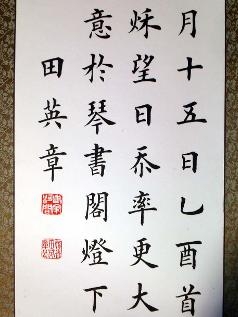 月十五日乙酉首
秋望日忝率更大
意於琴書閣燈下
田英章